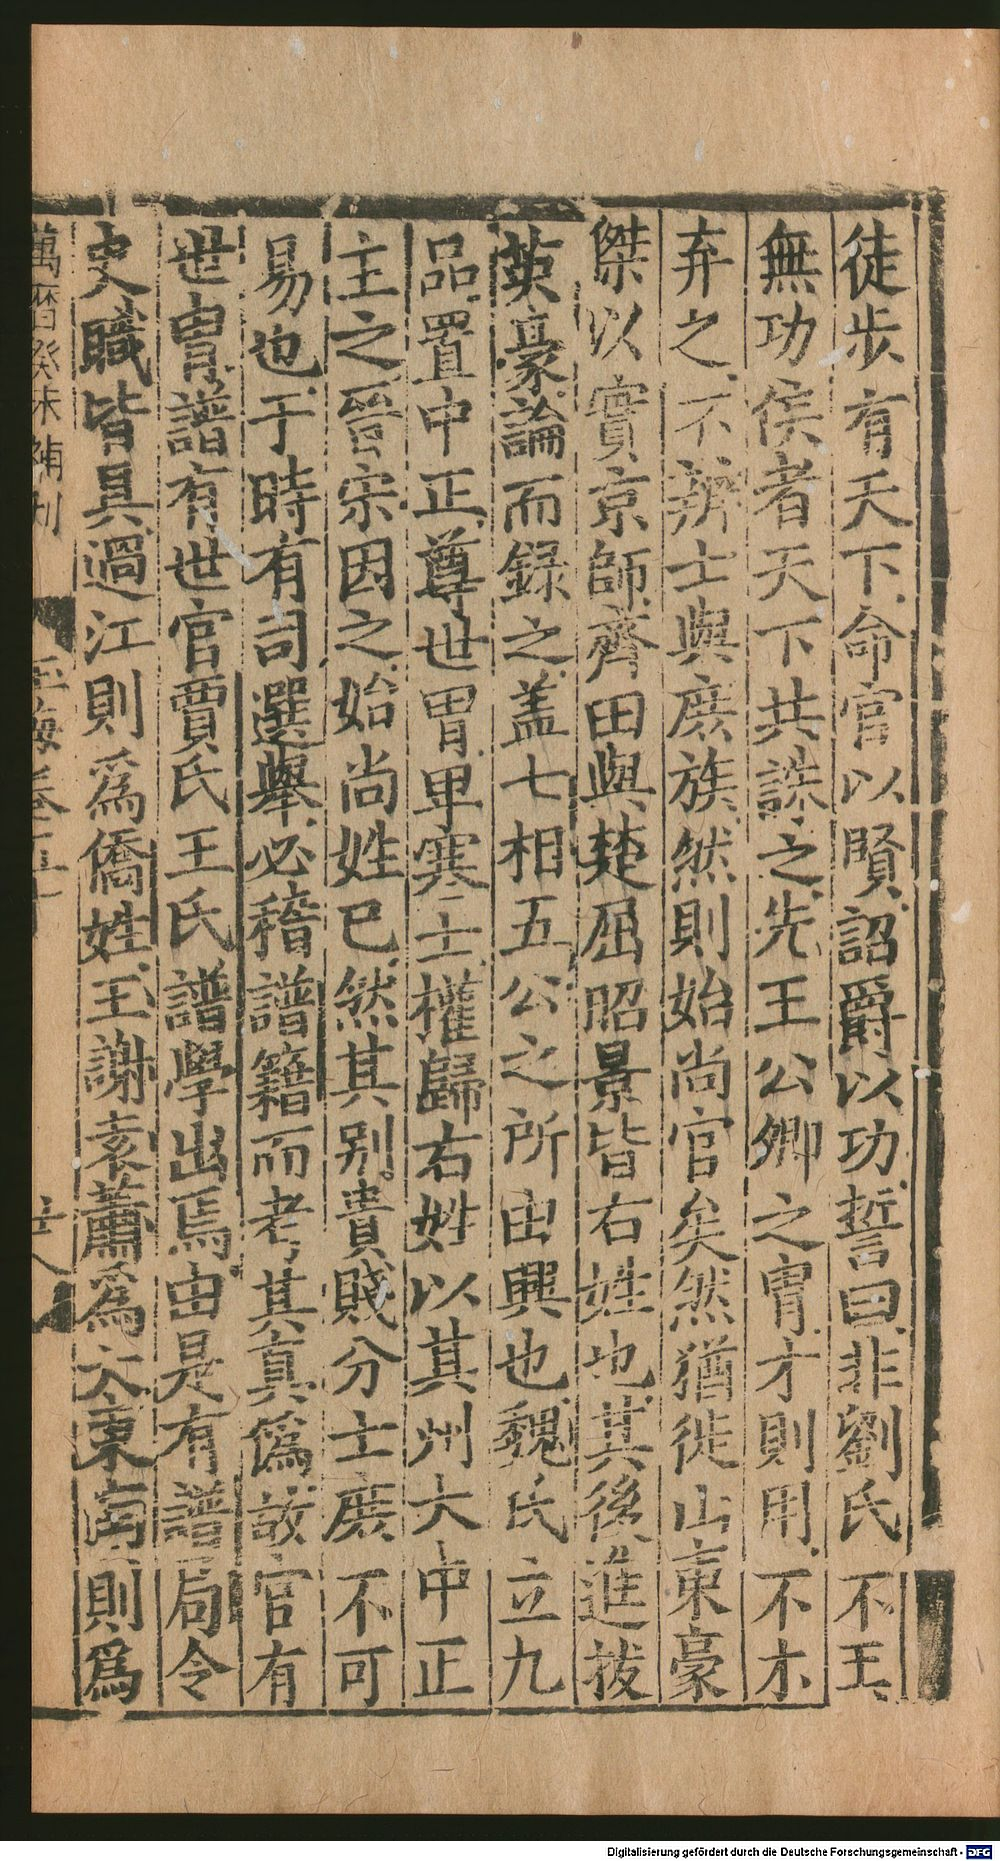 徒步有天下命官以賢詔爵以功誓曰非劉氏不王
無功侯者天下共誅之先王公卿之冑才則用不才
弃之不辨士與庶族然則始尚官矣然猶徙山東豪
傑以實京師齊田與楚屈昭景皆右姓也其後進拔
英豪論而録之盖七相五公之所由興也魏氏立九
品置中正尊世胃卑寒士權歸右姓以其州大中正
主之晉宋因之始尚姓已然其别貴賤分士庶不可
易也于時有司選舉必稽譜籍而考其真僞故官有
世胄譜有世官賈氏王氏譜學出焉由是有譜局令
史職皆具過江則爲僑姓王謝袁蕭爲大東南則爲
萬曆癸未補刊
玉海卷五十
廿八
Digitalisierung gefördert durch die Deutsche Forschungsgemeinschaft - DFG